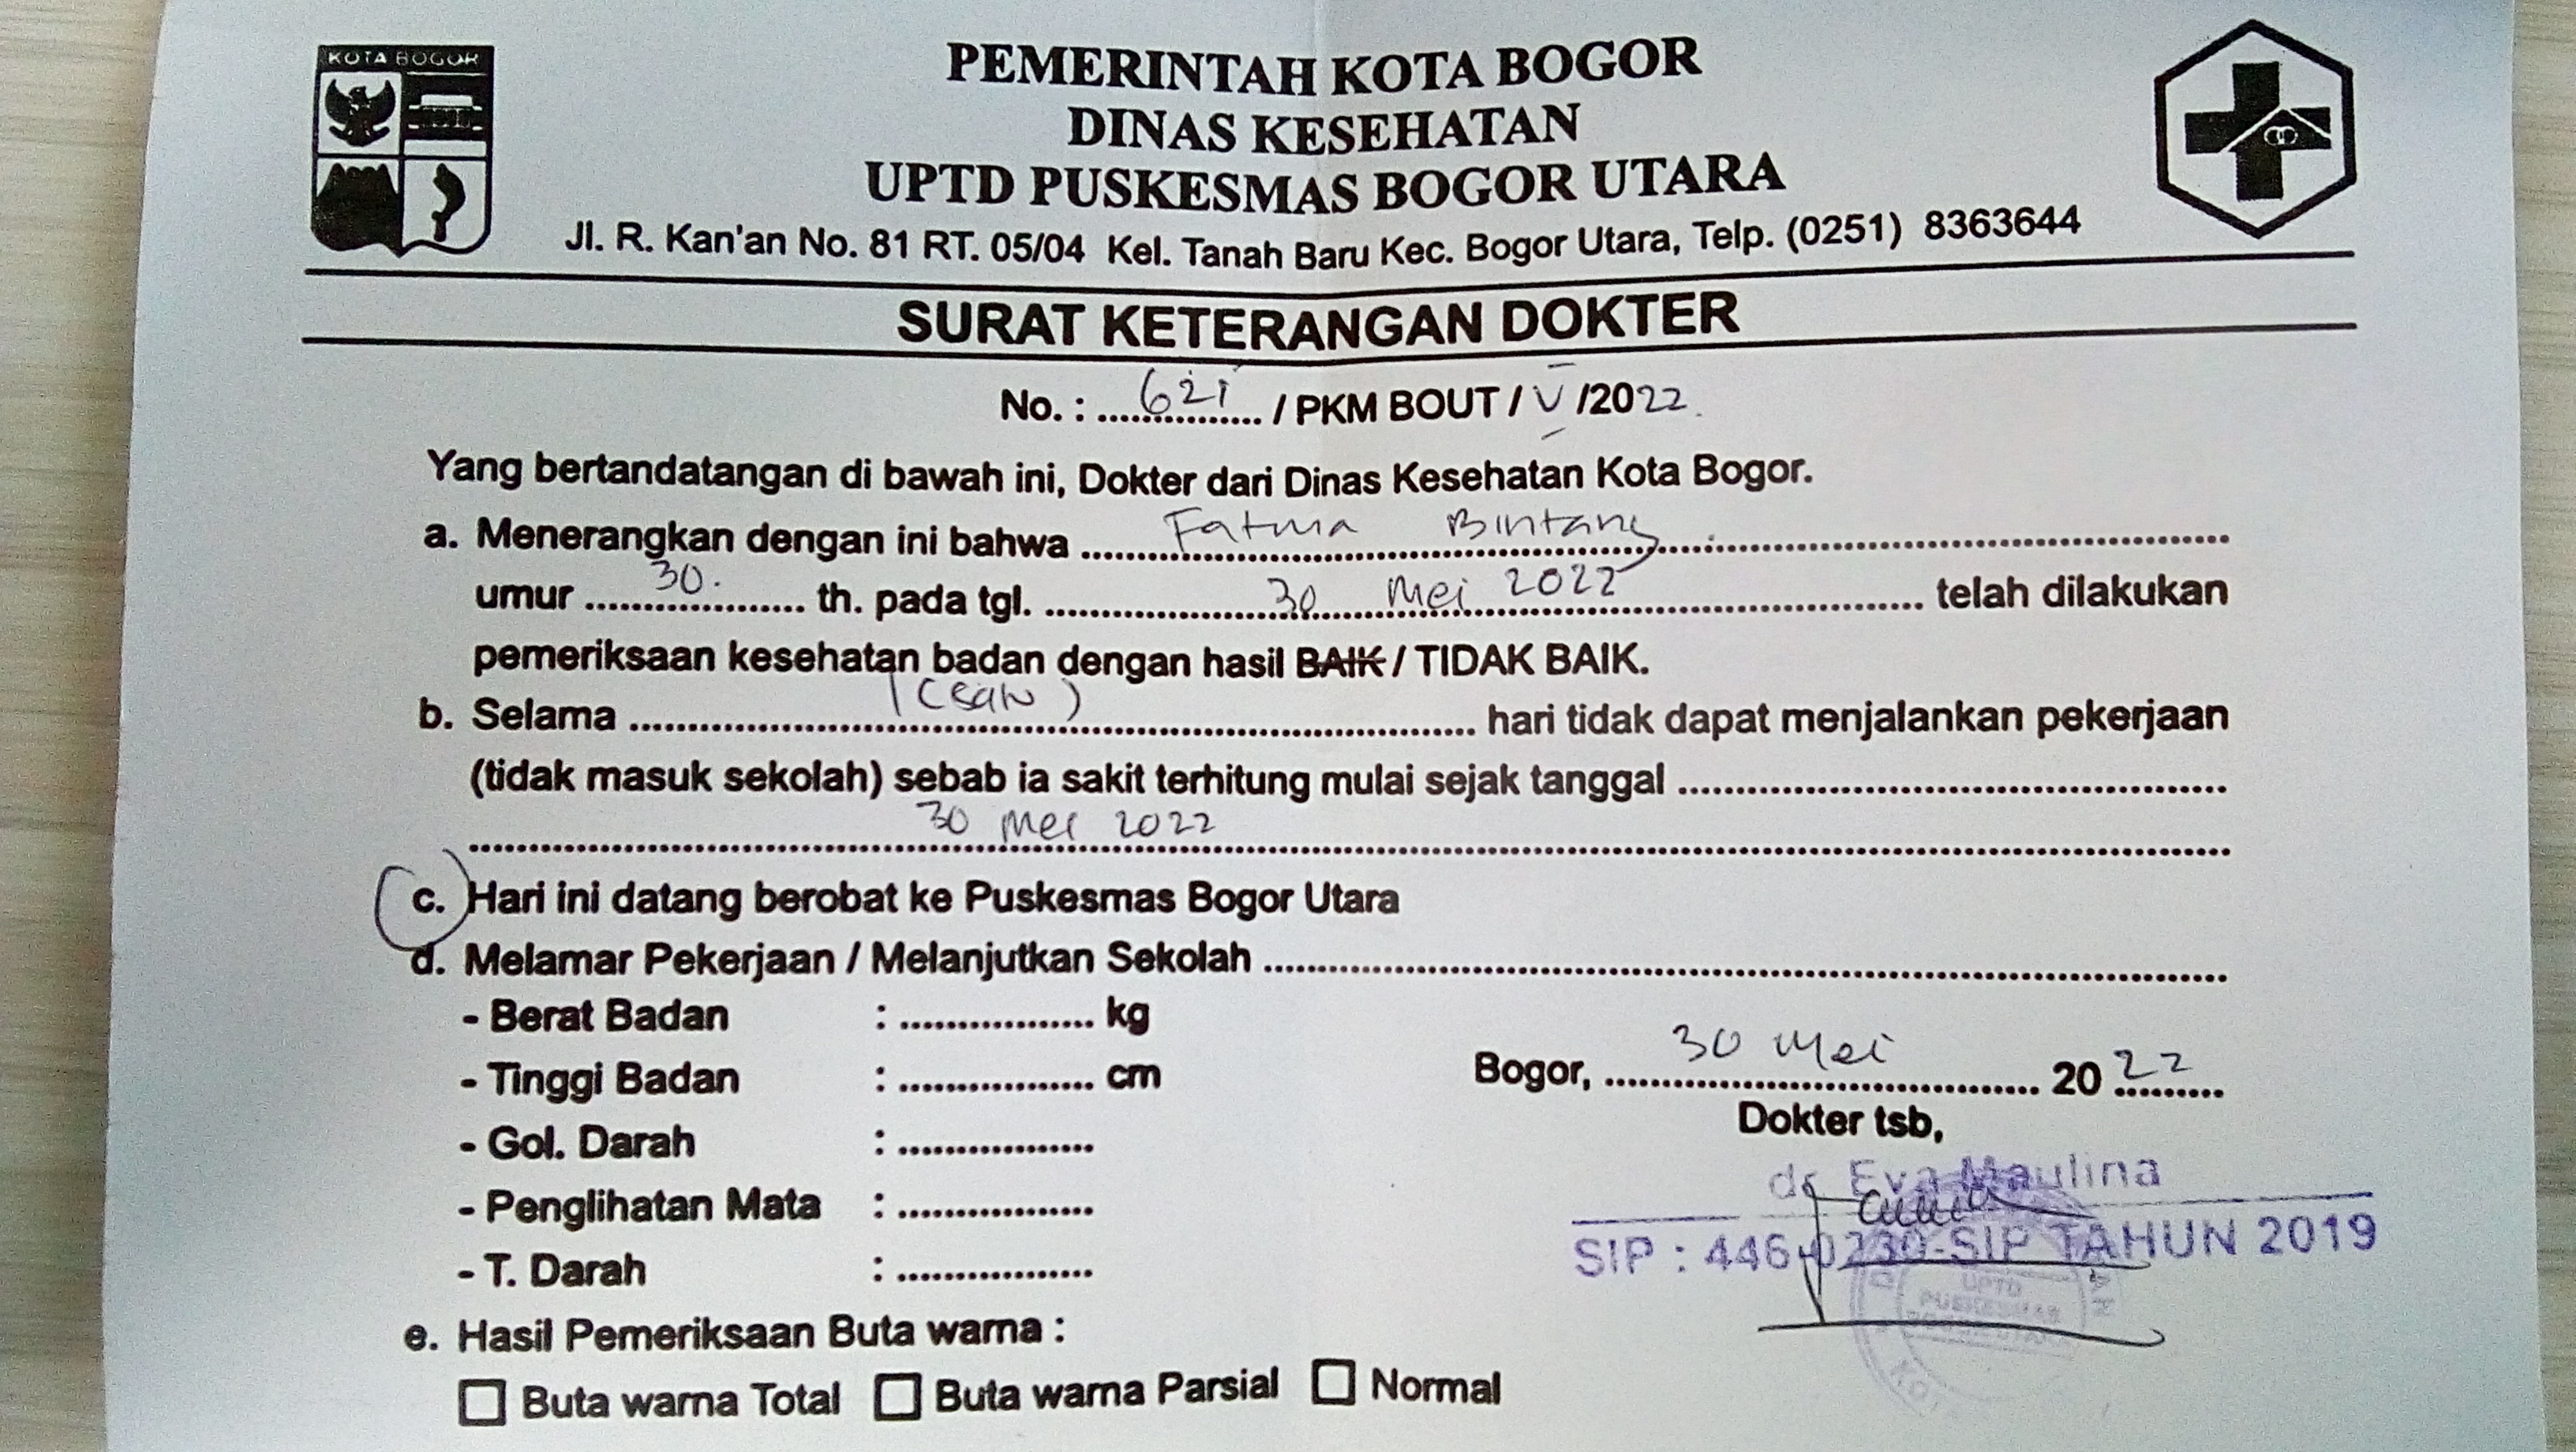 KOTA BOGOR
PEMERINTAH KOTA BOGOR
DINAS KESEHATAN
UPTD PUSKESMAS BOGOR UTARA
Jl. R. Kan'an No. 81 RT. 05/04 Kel. Tanah Baru Kec. Bogor Utara, Telp. (0251) 8363644
SURAT KETERANGAN DOKTER
No. : 621 / PKM BOUT / V /2022
Yang bertandatangan di bawah ini, Dokter dari Dinas Kesehatan Kota Bogor.
a. Menerangkan dengan ini bahwa Fatma Bintang
umur 30. th. pada tgl. 30 Mei 2022 telah dilakukan
pemeriksaan kesehatan badan dengan hasil BAIK / TIDAK BAIK.
b. Selama 1 (satu) hari tidak dapat menjalankan pekerjaan
(tidak masuk sekolah) sebab ia sakit terhitung mulai sejak tanggal
30 Mei 2022
c. Hari ini datang berobat ke Puskesmas Bogor Utara
d. Melamar Pekerjaan / Melanjutkan Sekolah
- Berat Badan : kg
- Tinggi Badan : cm
- Gol. Darah :
- Penglihatan Mata :
- T. Darah :
Bogor, 30 Mei 2022
Dokter tsb,
dr Eva Maulina
SIP : 446-0230-SIP TAHUN 2019
UPTD
PUSKESMAS
BOGOR UTARA
e. Hasil Pemeriksaan Buta warna :
Buta warna Total Buta warna Parsial Normal